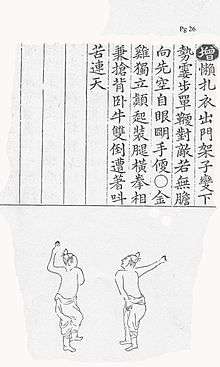 Pg 26
增懶扎衣出門架子變下
勢霎步單鞭對敵若無膽
向先空自眼明手便〇金
雞獨立顛起裝腿橫拳相
兼搶背卧牛雙倒遭著叫
苦連天